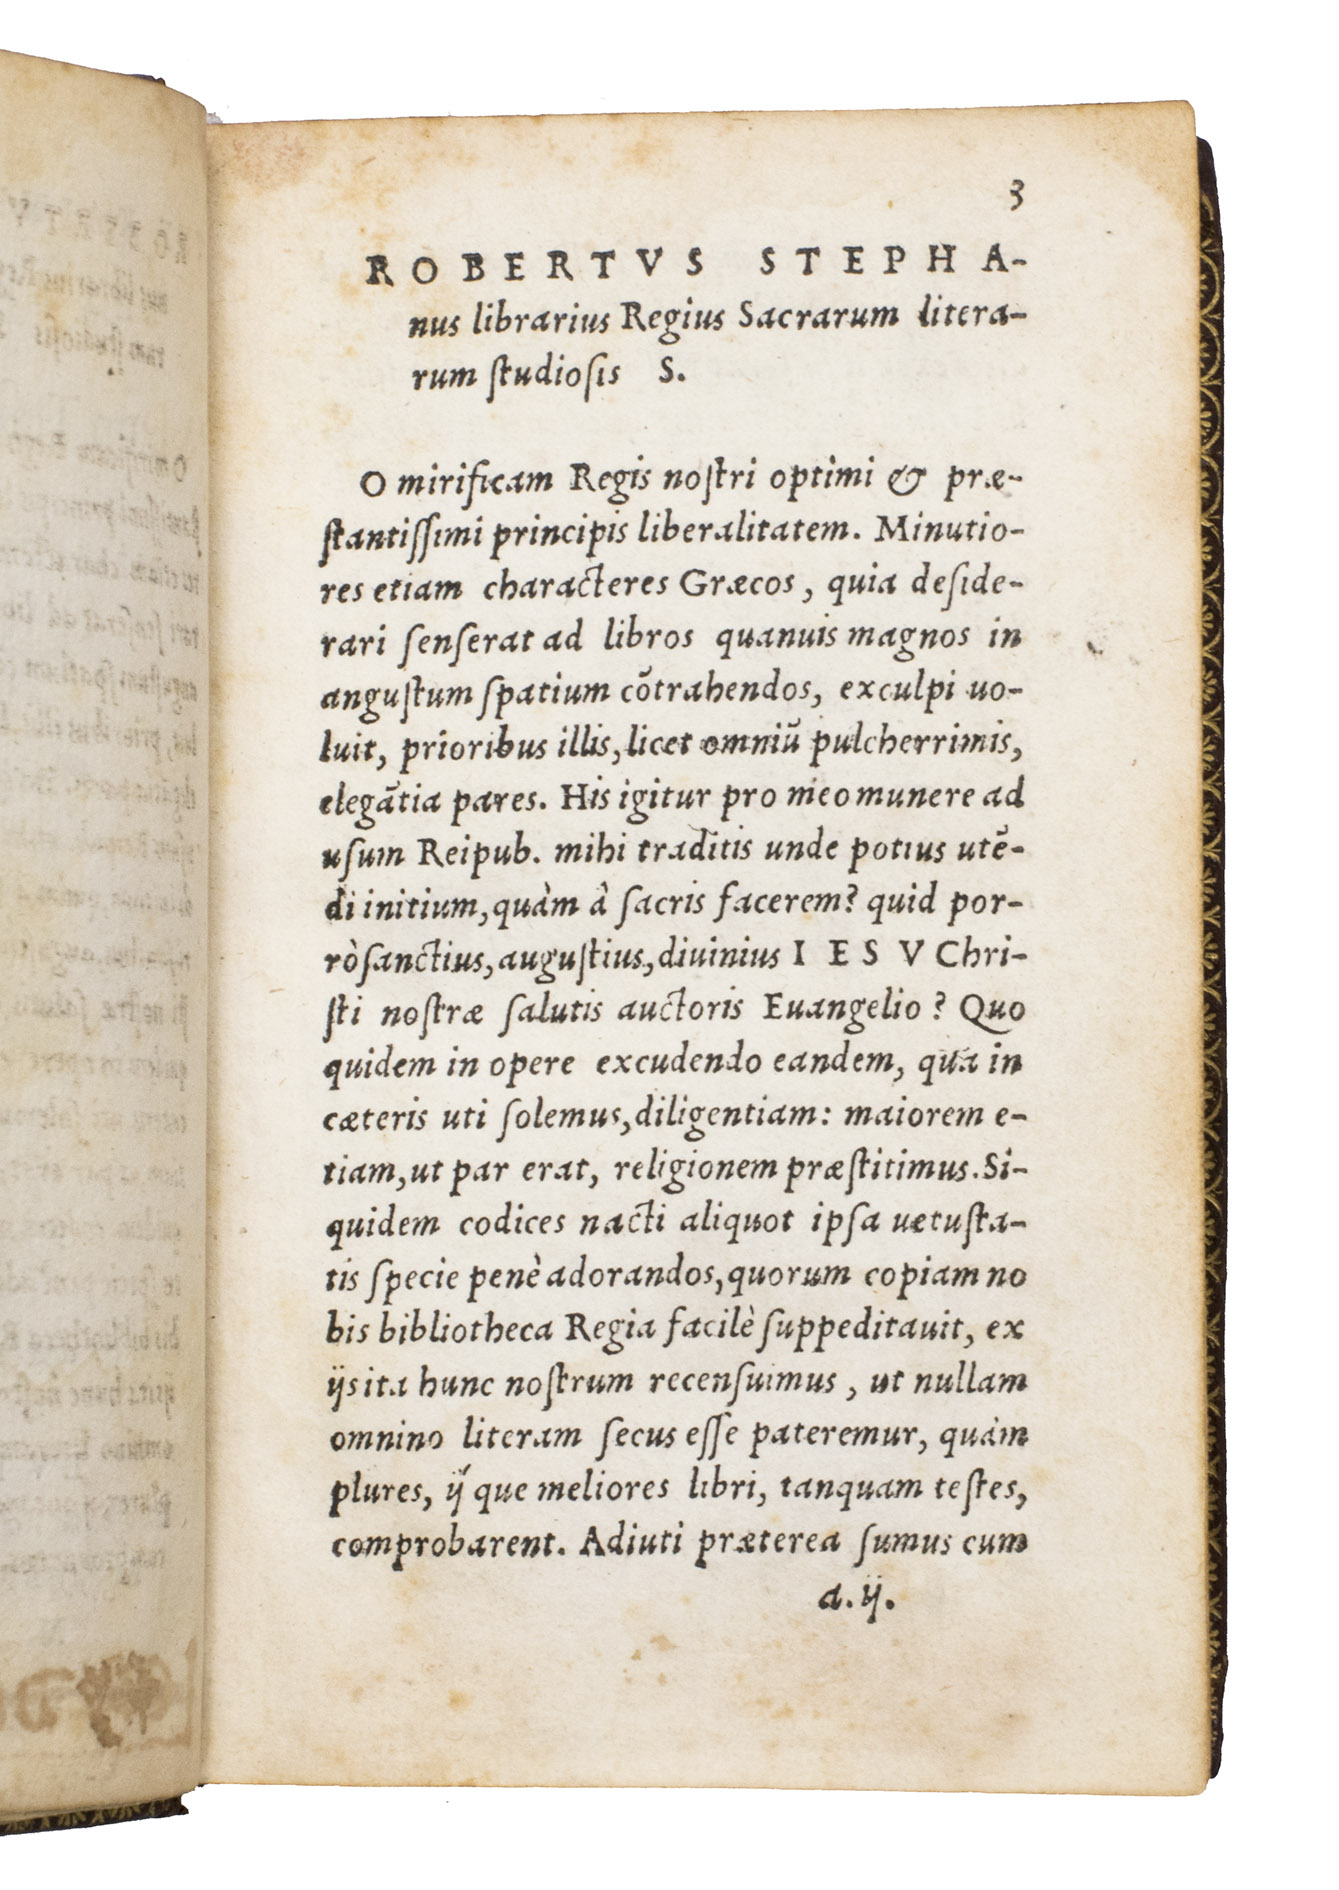 3
ROBERTVS STEPHA-
nus librarius Regius Sacrarum litera-
rum ſtudioſis S.
O mirificam Regis noſtri optimi & præ-
ſtantiſſimi principis liberalitatem. Minutio-
res etiam characteres Græcos, quia deſide-
rari ſenſerat ad libros quanuis magnos in
anguſtum ſpatium cõtrahendos, exculpi uo-
luit, prioribus illis, licet omniũ pulcherrimis,
elegãtia pares. His igitur pro meo munere ad
uſum Reipub. mihi traditis unde potius utẽ-
di initium, quàm à ſacris facerem? quid por-
rò ſanctius, auguſtius, diuinius IESV Chri-
ſti noſtræ ſalutis auctoris Euangelio? Quo
quidem in opere excudendo eandem, qua in
cæteris uti ſolemus, diligentiam: maiorem e-
tiam, ut par erat, religionem præſtitimus. Si-
quidem codices nacti aliquot ipſa uetuſta-
tis ſpecie penè adorandos, quorum copiam no
bis bibliotheca Regia facilè ſuppeditauit, ex
ijs ita hunc noſtrum recenſuimus, ut nullam
omnino literam ſecus eſſe pateremur, quàm
plures, ijque meliores libri, tanquam teſtes,
comprobarent. Adiuti præterea ſumus cum
a.ij.